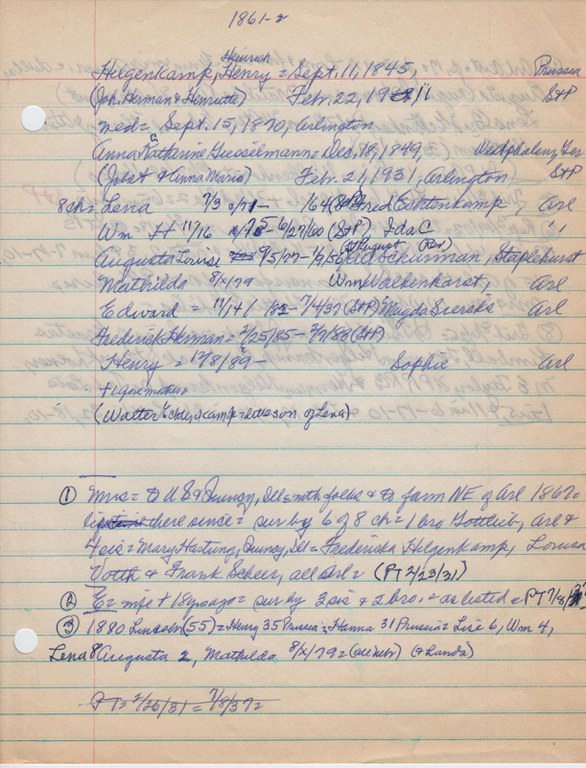 1861-2
Heinrich
Helgenkamp, Henry = Sept. 11, 1845, Prussia
(Joh. Herman & Henriette) Feb. 22, 19 11 StP
wed = Sept. 15, 1870, Arlington
Anna Katherine Giesselmann = Dec, 18, 1849, Westphalen, Ger
(Jobst & Anna Maria) Feb. 21, 1931, Arlington StP
8ch = Lena 7/3 /71 - /64 (StP) Fred Echtenkamp, Arl
Wm H 11/16 /75 - 6/27/60 (StP), Ida C "
(StP) August (Rev)
Augusta Louise 9/5/77 - 1/9/56 Schurman, Staplehurst
Mathilda 8/x/79 Wm Walkenhorst, Arl
Edward = 11/ / 82 - 7/4/37 (StP) Magda Sierks Arl
Frederick Herman = 2/25/85 - /88 (StP)
Henry = 12/8/89 - Sophie Arl
(Walter = son of Lena)
① Mrs = to US & Quincy, Ill = with folks & to farm NE of Arl 1867 =
there since = sur by 6 of 8 ch = 1 bro Gottlieb, Arl &
4 sis = Mary Hartung, Quincy, Ill = Fredericka Helgenkamp, Louisa
Voth & Frank Scheer, all Arl = (PT 2/23/31)
② E = mfe + 18 yrs ago = sur by 3 sis & 2 bro. = as listed = PT 7/8/37
③ 1880 Lincoln (55) = Henry 35 Prussia = Hanna 31 Prussia = Lise 6, Wm 4,
Lena 8 Augusta 2, Mathilda 8/x/79 = (all Nebr) (& Landa)
PT = 2/26/31 = 7/8/37 =